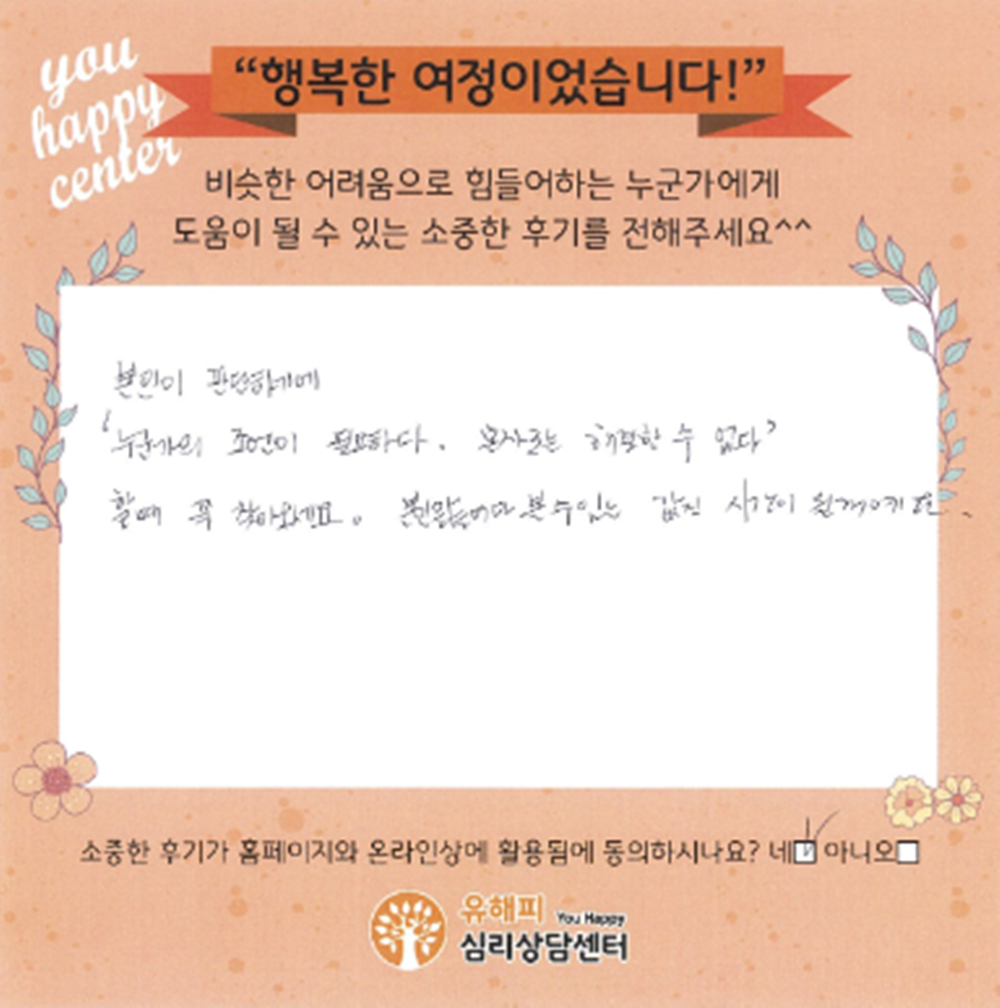 you
happy
center
“행복한 여정이었습니다!”
비슷한 어려움으로 힘들어하는 누군가에게
도움이 될 수 있는 소중한 후기를 전해주세요^^
본인이 판단하기에
‘누군가의 조언이 필요하다. 혼자로는 해결할 수 없다’
할때 꼭 찾아오세요. 볼 수 있는 값진 시간이
소중한 후기가 홈페이지와 온라인상에 활용됨에 동의하시나요? 네 아니오
유해피 You Happy
심리상담센터